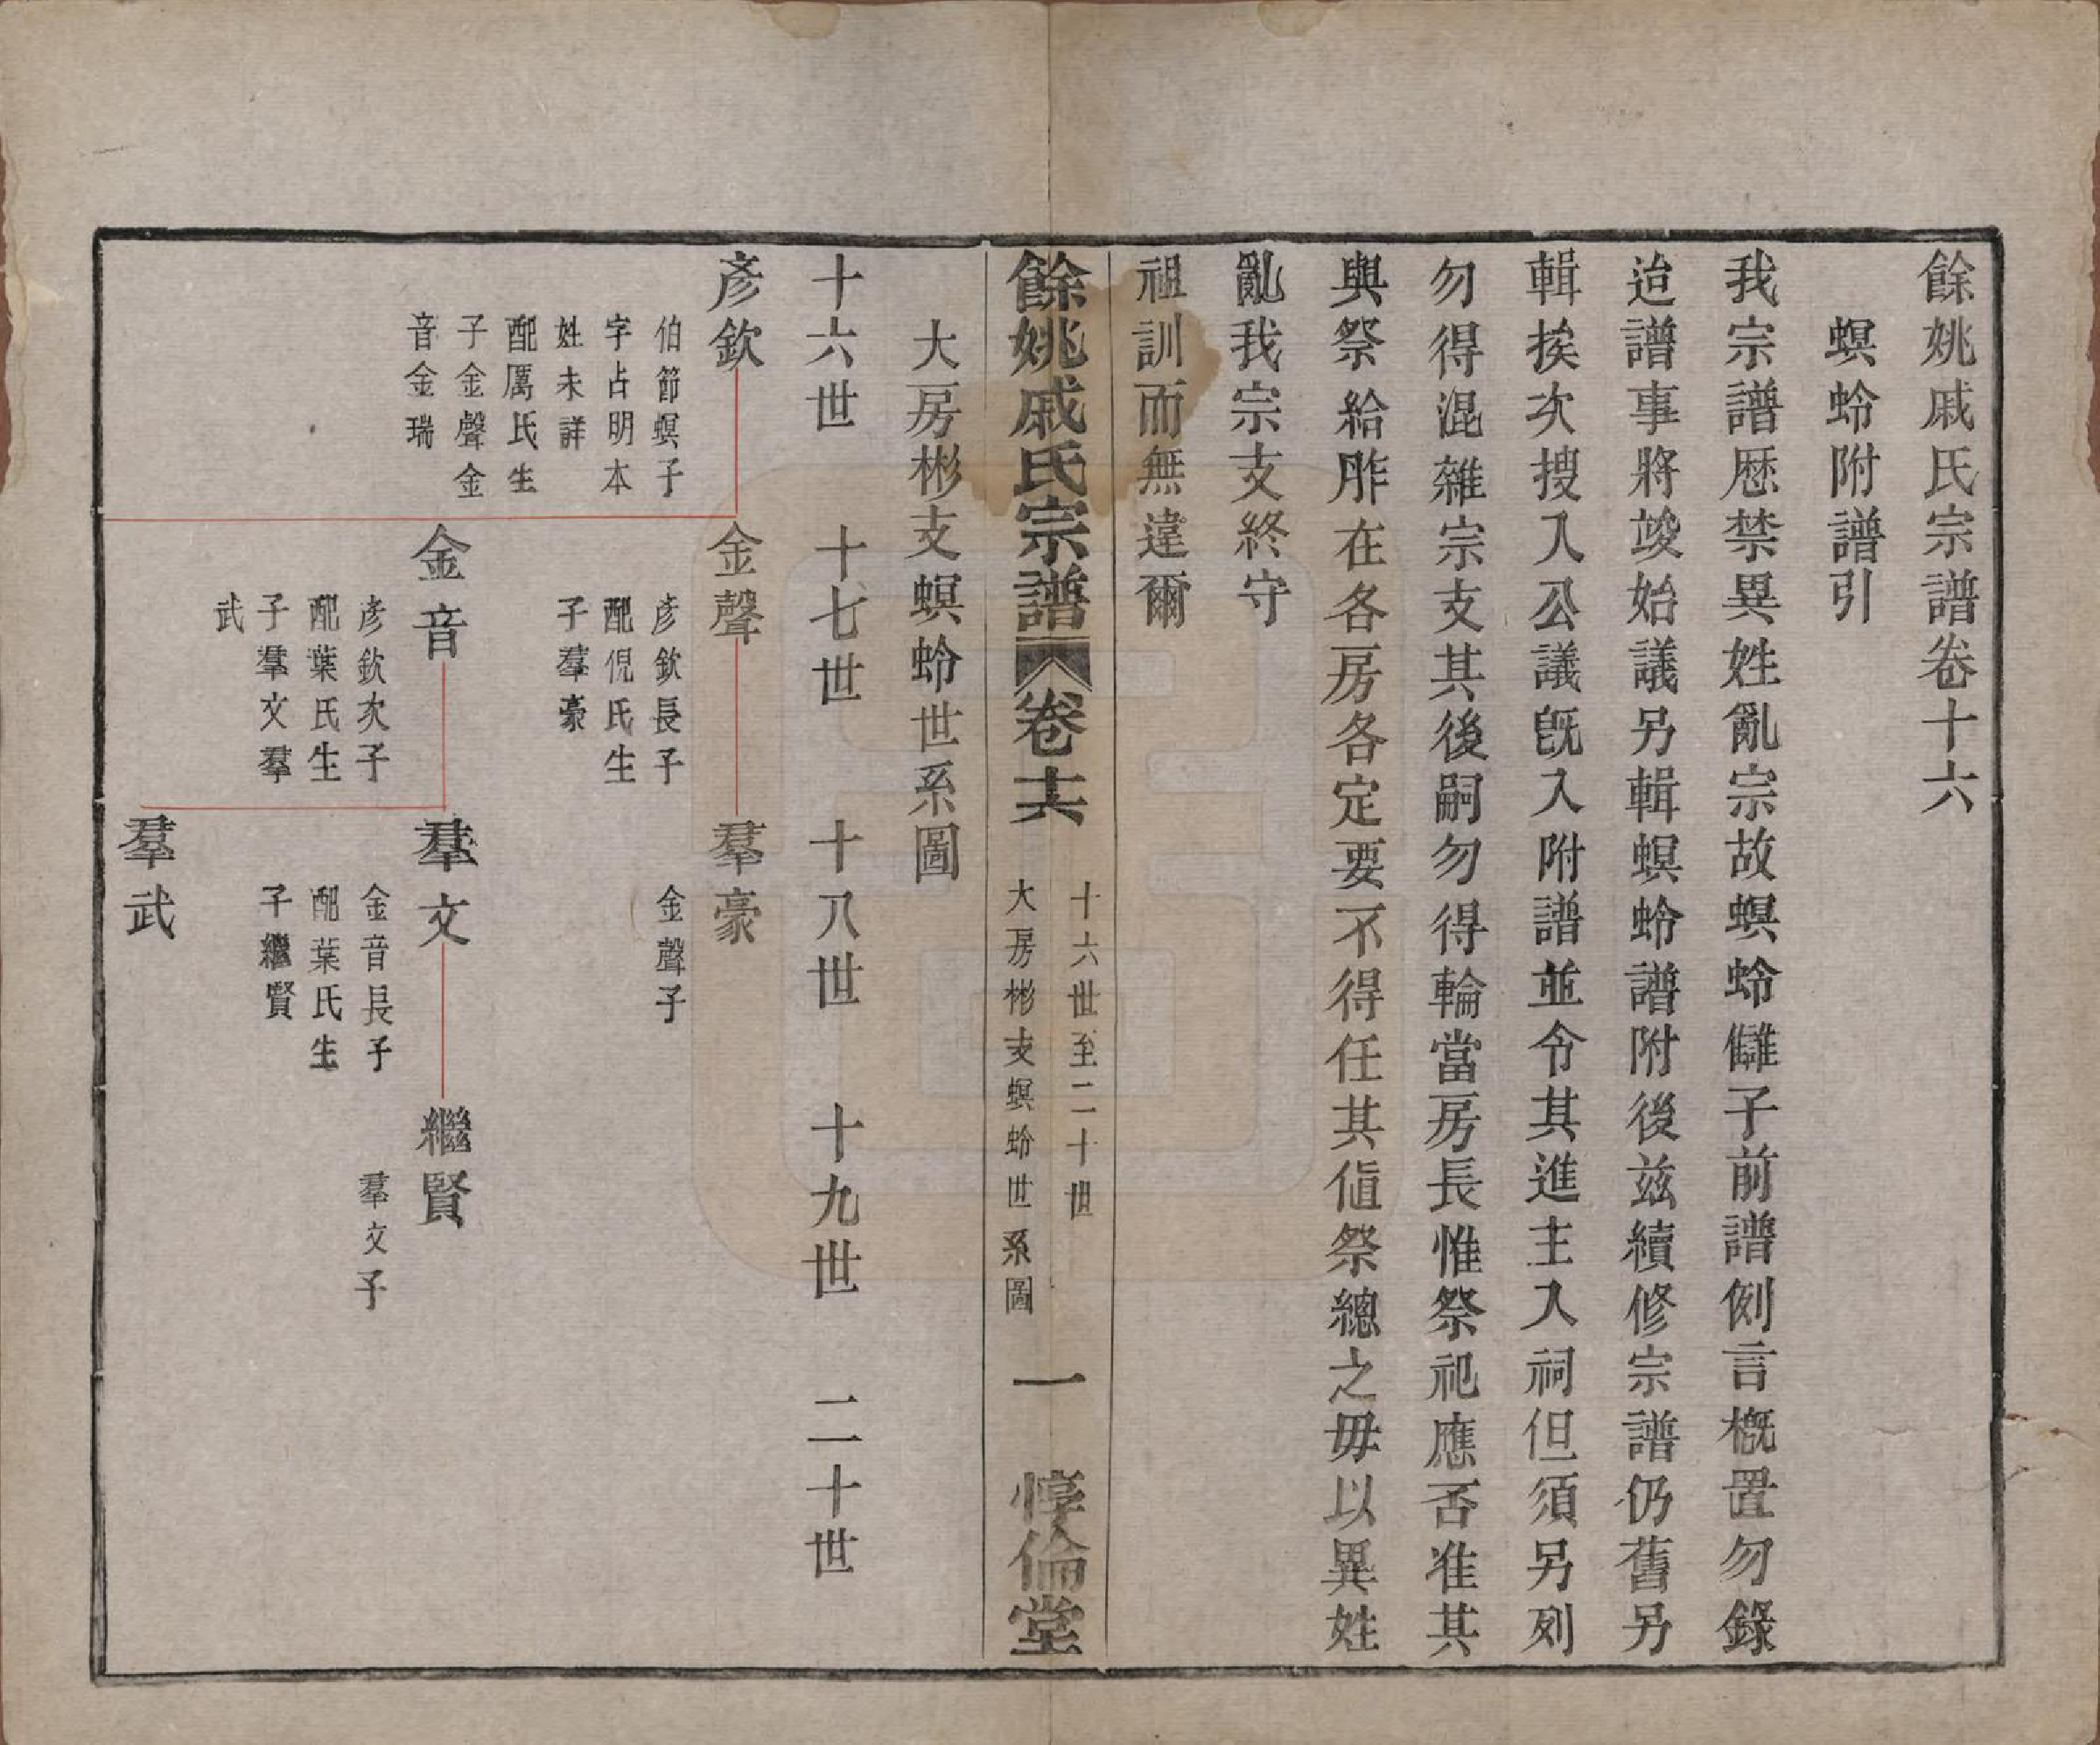 餘姚戚氏宗譜卷十六
螟蛉附譜引
我宗譜歷禁異姓亂宗故螟蛉讎子前譜例言槪置勿錄
迨譜事將竣始議另輯螟蛉譜附後玆續修宗譜仍舊另
輯挨次搜入公議旣入附譜並令其進主入祠但須另列
勿得混雜宗支其後嗣勿得輪當房長惟祭祀應否准其
與祭給胙在各房各定要不得任其値祭總之毋以異姓
亂我宗支終守
祖訓而無違爾
餘姚戚氏宗譜 卷十六 十六世至二十世 大房彬支螟蛉世系圖 一 惇倫堂
大房彬支螟蛉世系圖
十六世 十七世 十八世 十九世 二十世
彥欽
伯節螟子
字占明本
姓未詳
配厲氏生
子金聲金
音金瑞
金聲
彥欽長子
配倪氏生
子羣豪
羣豪
金聲子
金音
彥欽次子
配葉氏生
子羣文羣
武
羣文
金音長子
配葉氏生
子繼賢
繼賢
羣文子
羣武